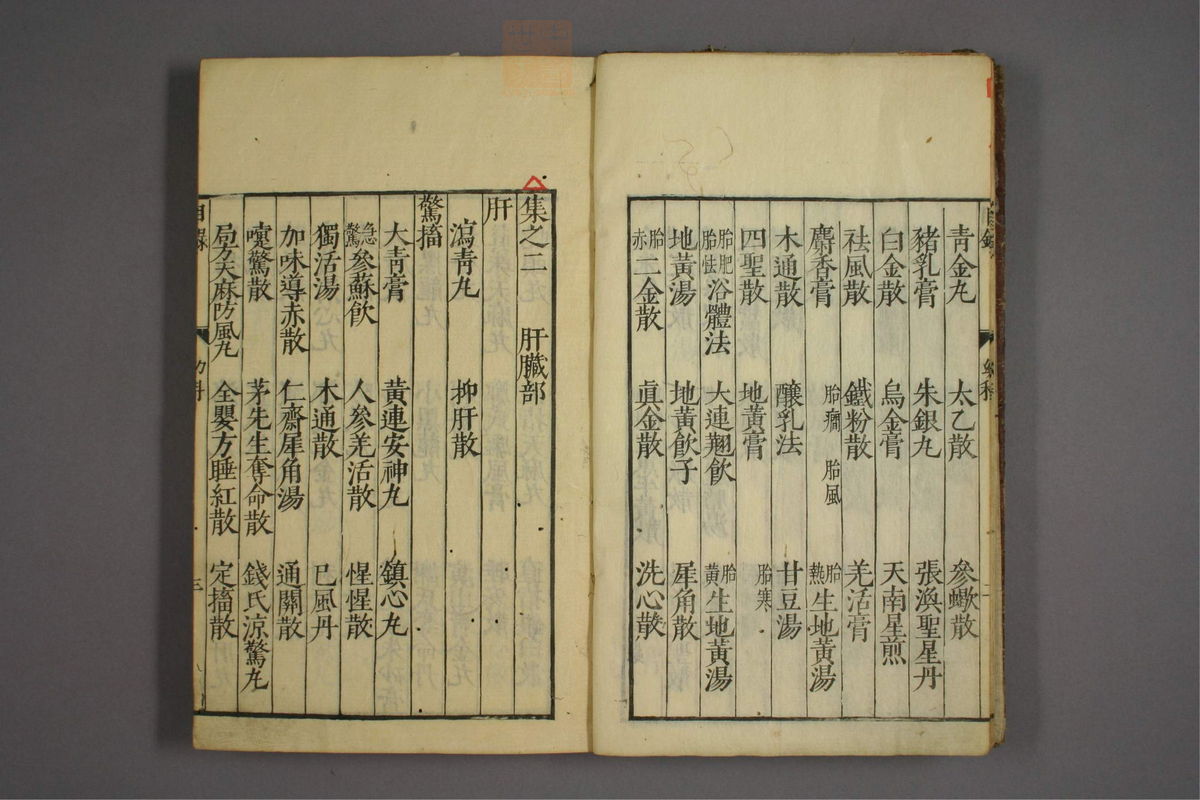 青金丸 太乙散 參蠍散
豬乳膏 朱銀丸 張渙聖星丹
白金散 烏金膏 天南星煎
祛風散 鐵粉散 羌活膏
麝香膏 胎癎 胎風 胎熱 生地黃湯
木通散 釀乳法 甘豆湯
四聖散 地黃膏 胎寒
胎肥 胎怯 浴體法 大連翹飲 胎黃 生地黃湯
地黃湯 地黃飮子 犀角散
胎赤 二金散 眞金散 洗心散
集之二 肝臟部
肝
瀉青丸 抑肝散
驚搐
大青膏 黃連安神丸 鎮心丸
急驚 參蘇飮 人參羌活散 惺惺散
獨活湯 木通散 巳風丹
加味導赤散 仁齋犀角湯 通關散
嚏驚散 茅先生奪命散 錢氏涼驚丸
局方天麻防風丸 全嬰方睡紅散 定搐散
目錄 三